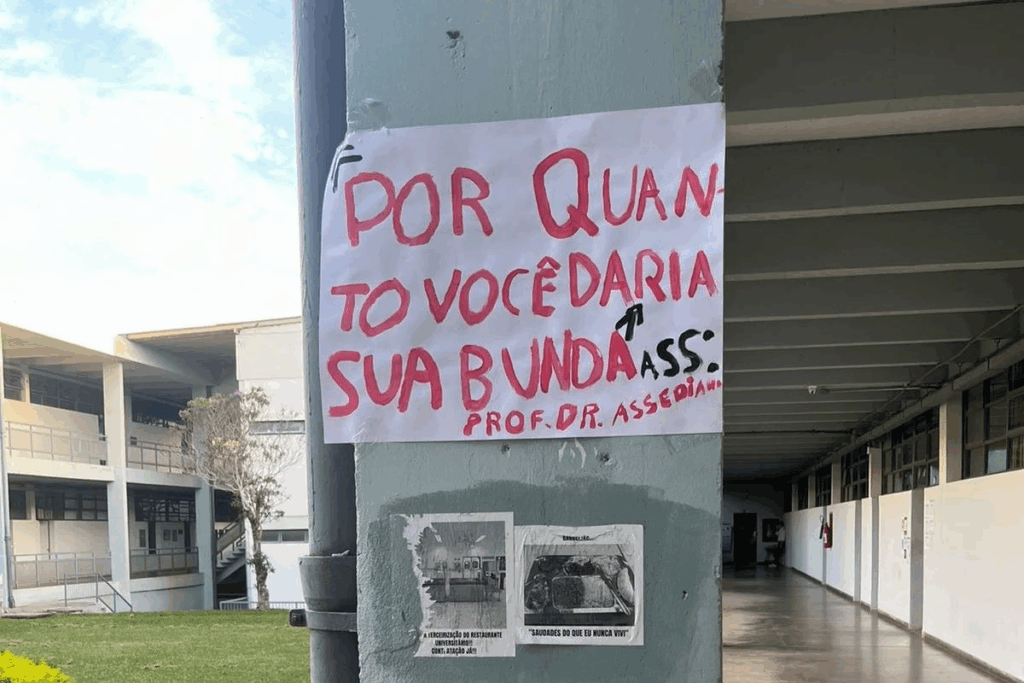 POR QUAN-
TO VOCÊ DARIA
SUA BUNDA
ASS:
PROF. DR.
BANDEIJÃO
A TERCEIRIZAÇÃO DO RESTAURANTE
UNIVERSITÁRIO!!!
JÁ!!!
"SAUDADES DO QUE EU NUNCA VIVI"